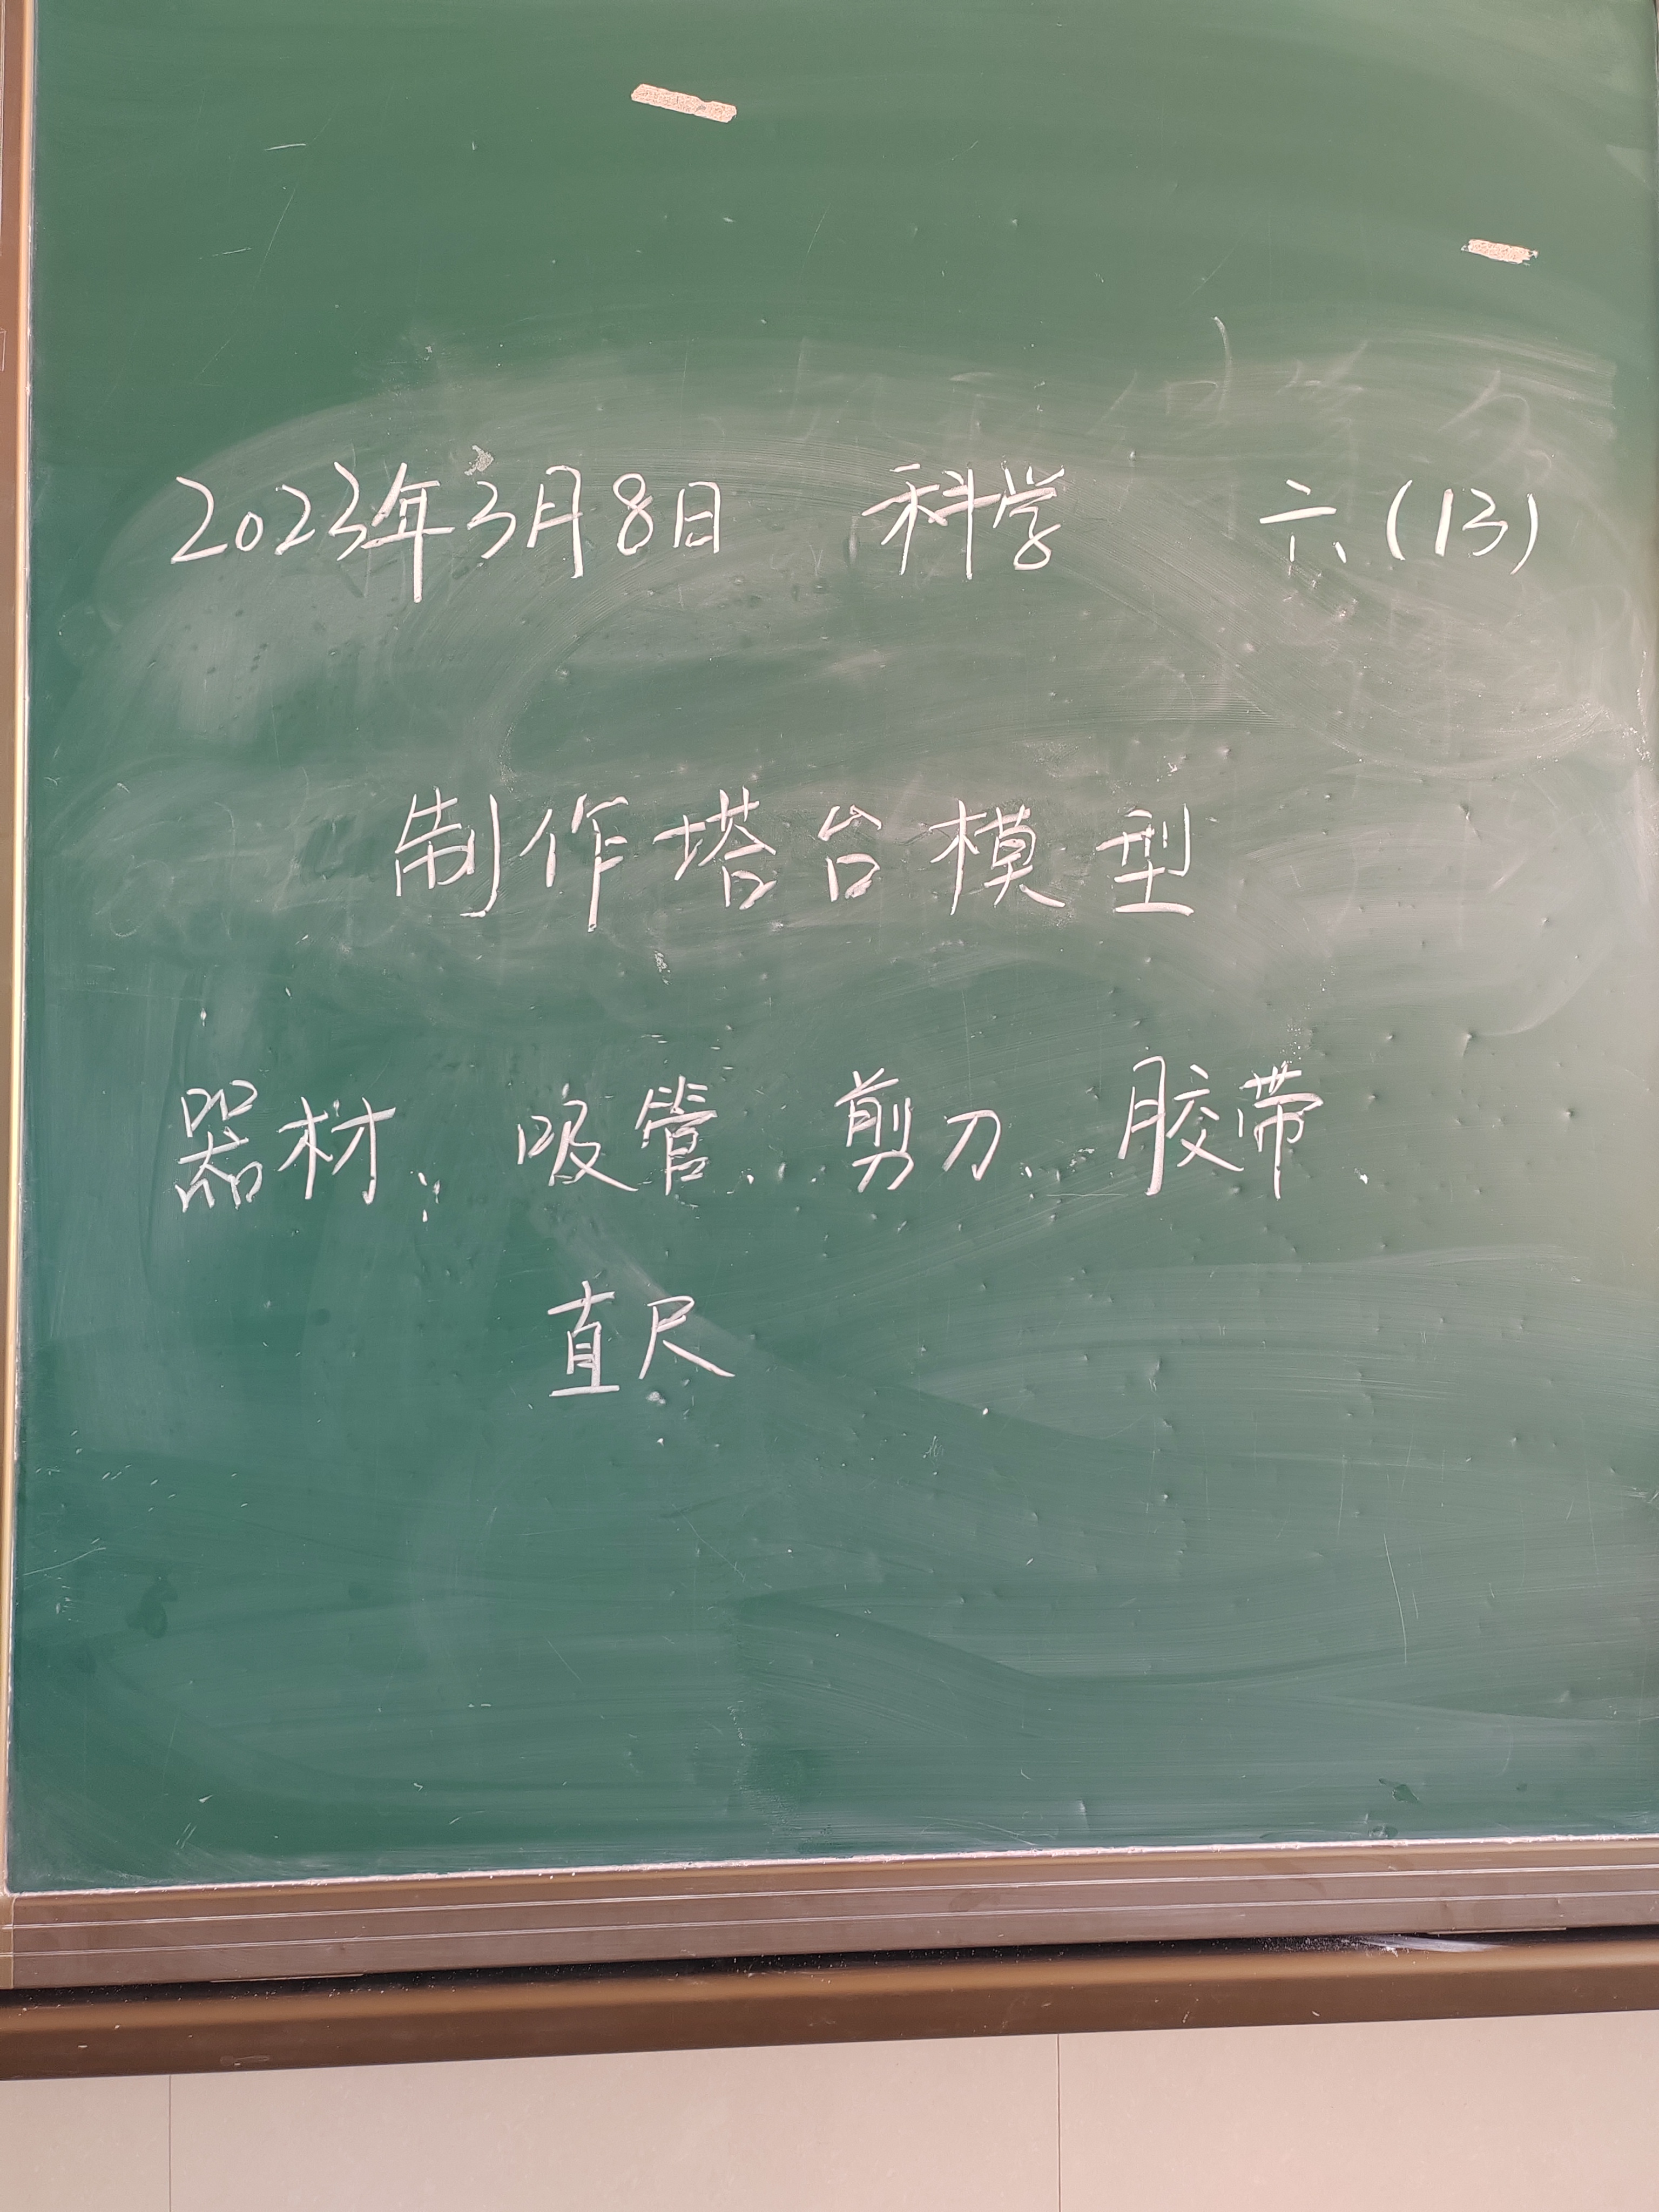 2023年3月8日 科学 六(13)
制作塔台模型
器材: 吸管、剪刀、胶带、
直尺